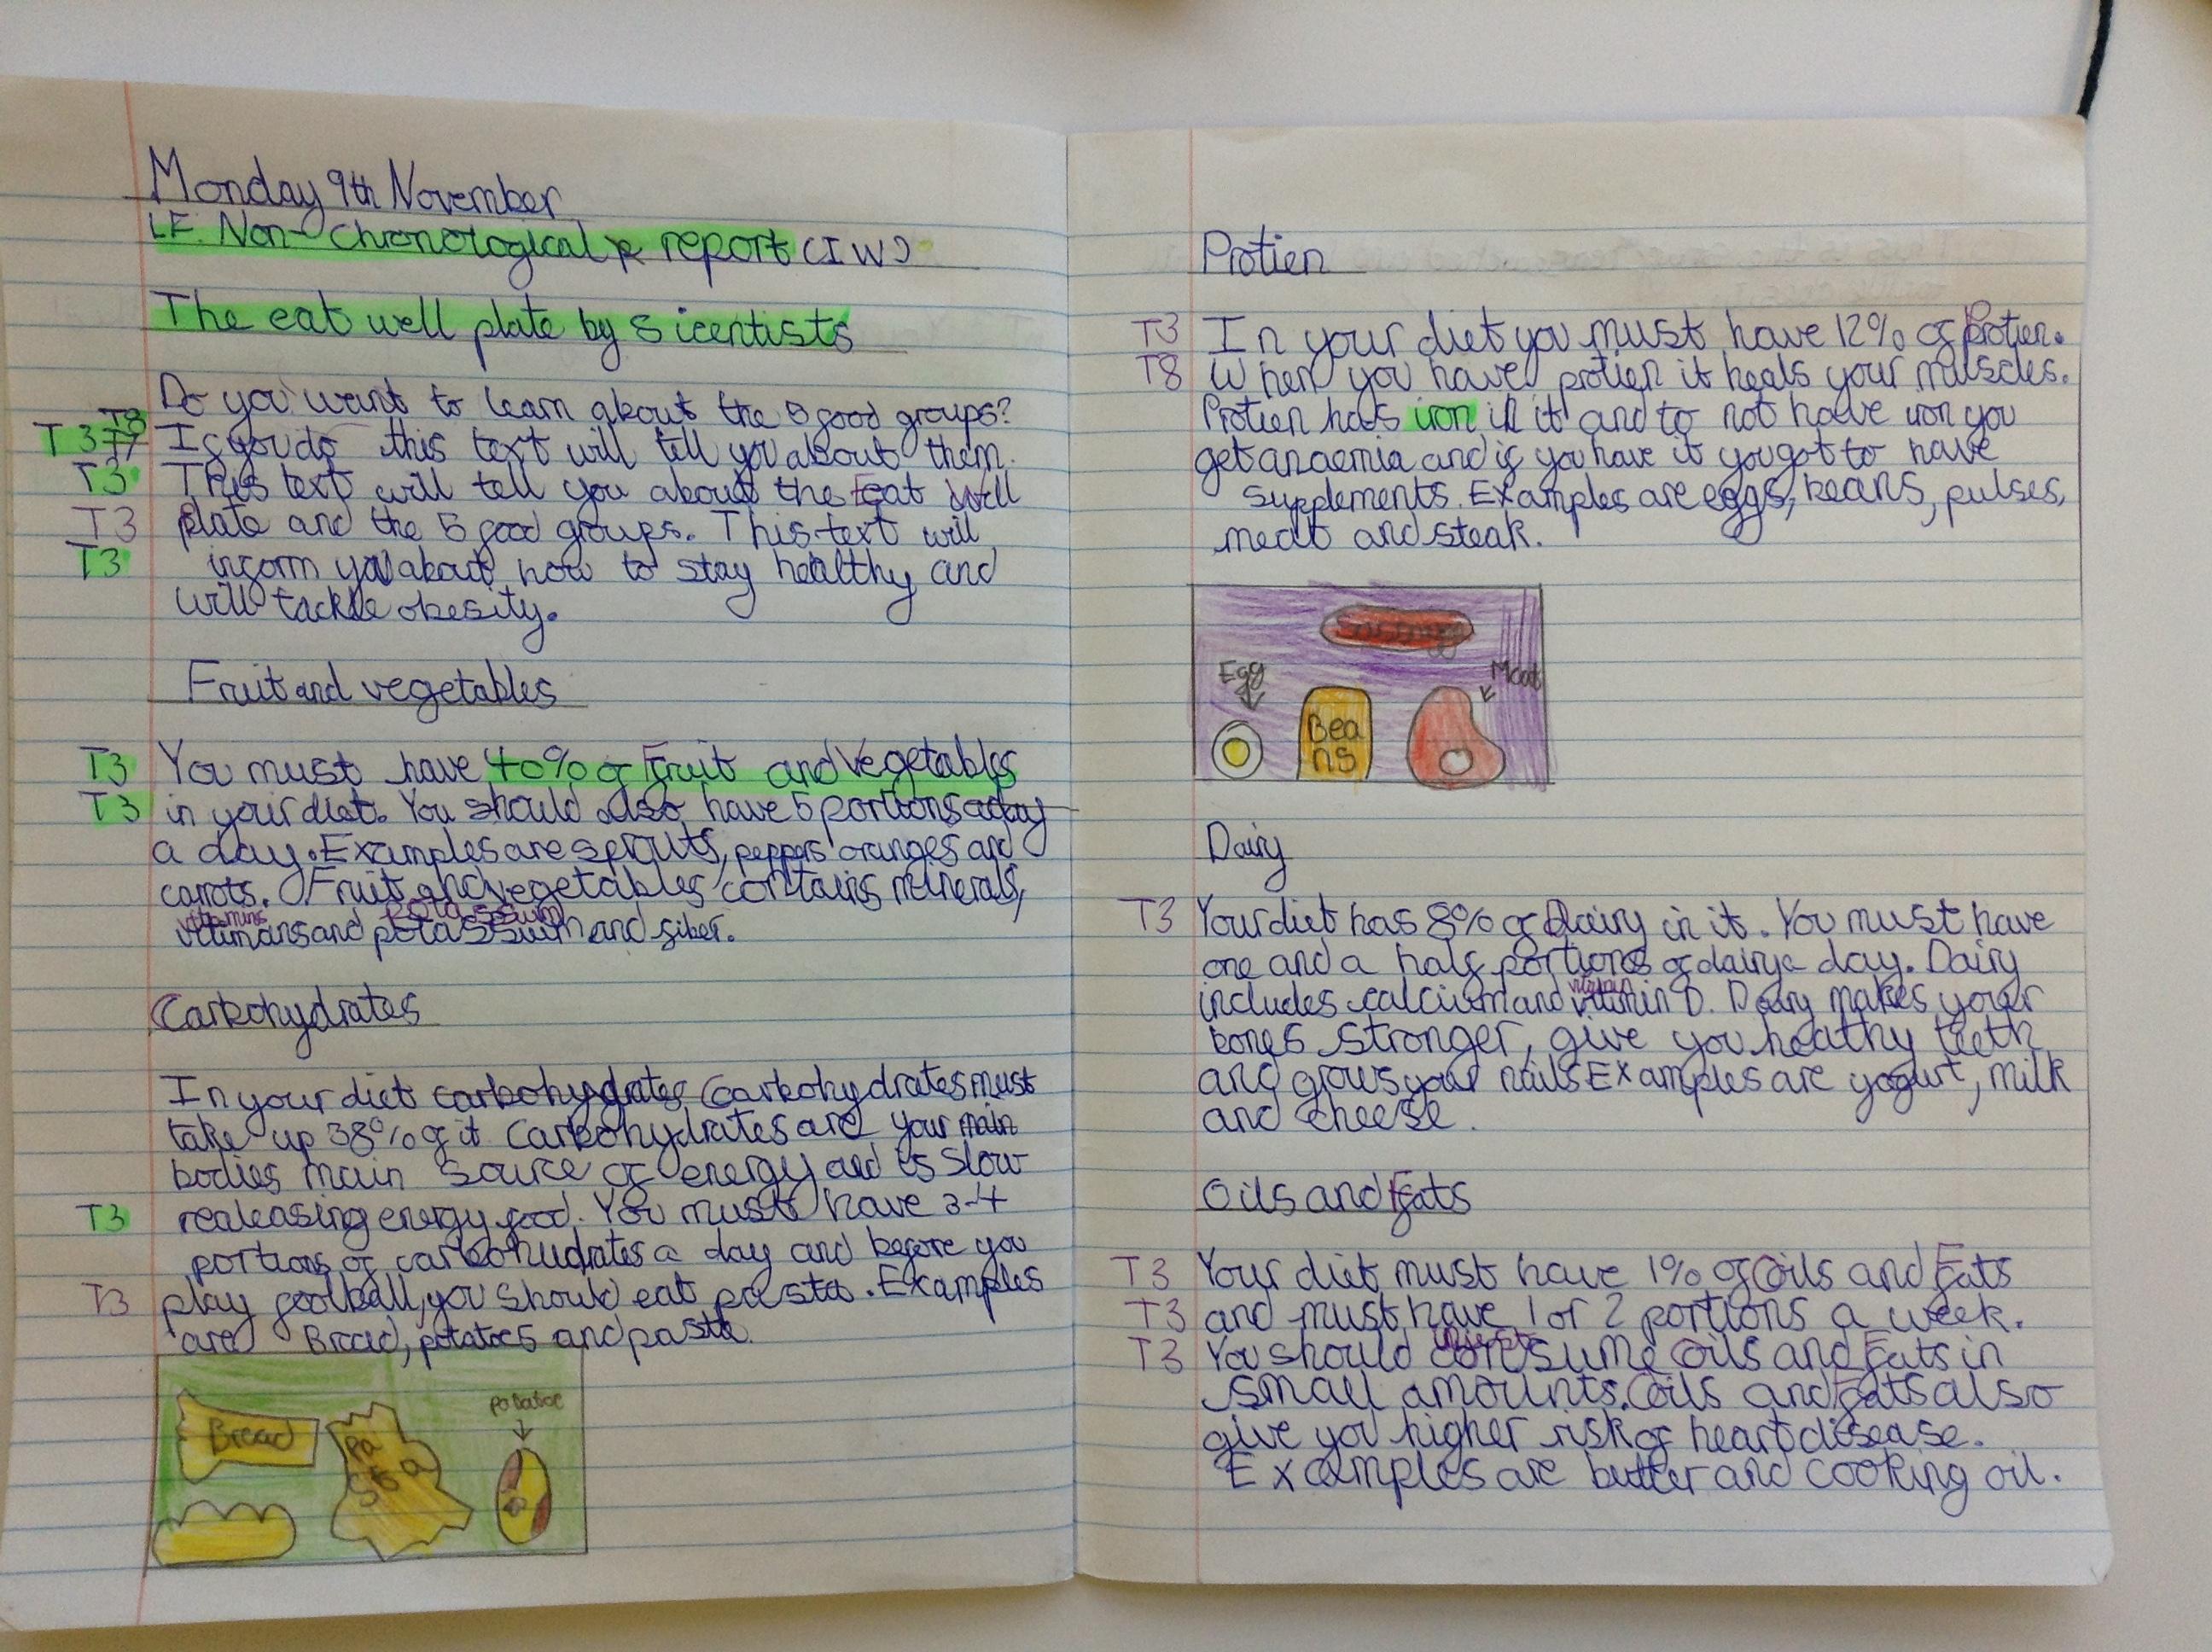 Monday 9th November
LF. Non-Chronological r report (IW)
The eat well plate by sicentists
T8 Do you want to learn about the 5 food groups?
T3 T7 If you do this text will tell you about them.
T3 This text will tell you about the Eat Well
T3 plate and the 5 food groups. This text will
T3 inform you about how to stay healthy and
will tackle obesity.
Fruit and vegetables
T3 You must have 40% of Fruit and Vegetables
T3 in your diet. You should also have 5 portions aday
a day. Examples are sprouts, peppers oranges and
carrots. Fruit and vegetables contains minerals,
vitamins potassium
vitimans and potassuim and fiber.
Carbohydrates
In your diet carbohydrates Carbohydrates must
take up 38% of it Carbohydrates are your main
bodies main source of energy and is slow
T3 realeasing energy food. You must have 3-4
portions of carbohudrates a day and before you
T3 play football, you should eat pasta. Examples
are Bread, potatoes and pasta.
Bread
Pa
sta
potatoe
Protien
T3 In your diet you must have 12% of Protien.
T8 When you have protien it heals your muscles.
Protien has iron in it and to not have iron you
get anaemia and if you have it you got to have
supplements. Examples are eggs, beans, pulses,
meat and steak.
Sausage
Egg
Meat
Bea
ns
Dairy
T3 Your diet has 8% of Dairy in it. You must have
one and a half portions of dairy a day. Dairy
includes calcium and vitimin D. Dairy makes your
bones stronger, give you heathy teeth
and grows your nails Examples are yogurt, milk
and cheese.
Oils and Fats
T3 Your diet must have 1% of Oils and Fats
T3 and must have 1 or 2 portions a week.
T3 You should consume Oils and Fats in
small amounts. Oils and Fats also
give you higher risk of heart disease.
Examples are butter and cooking oil.